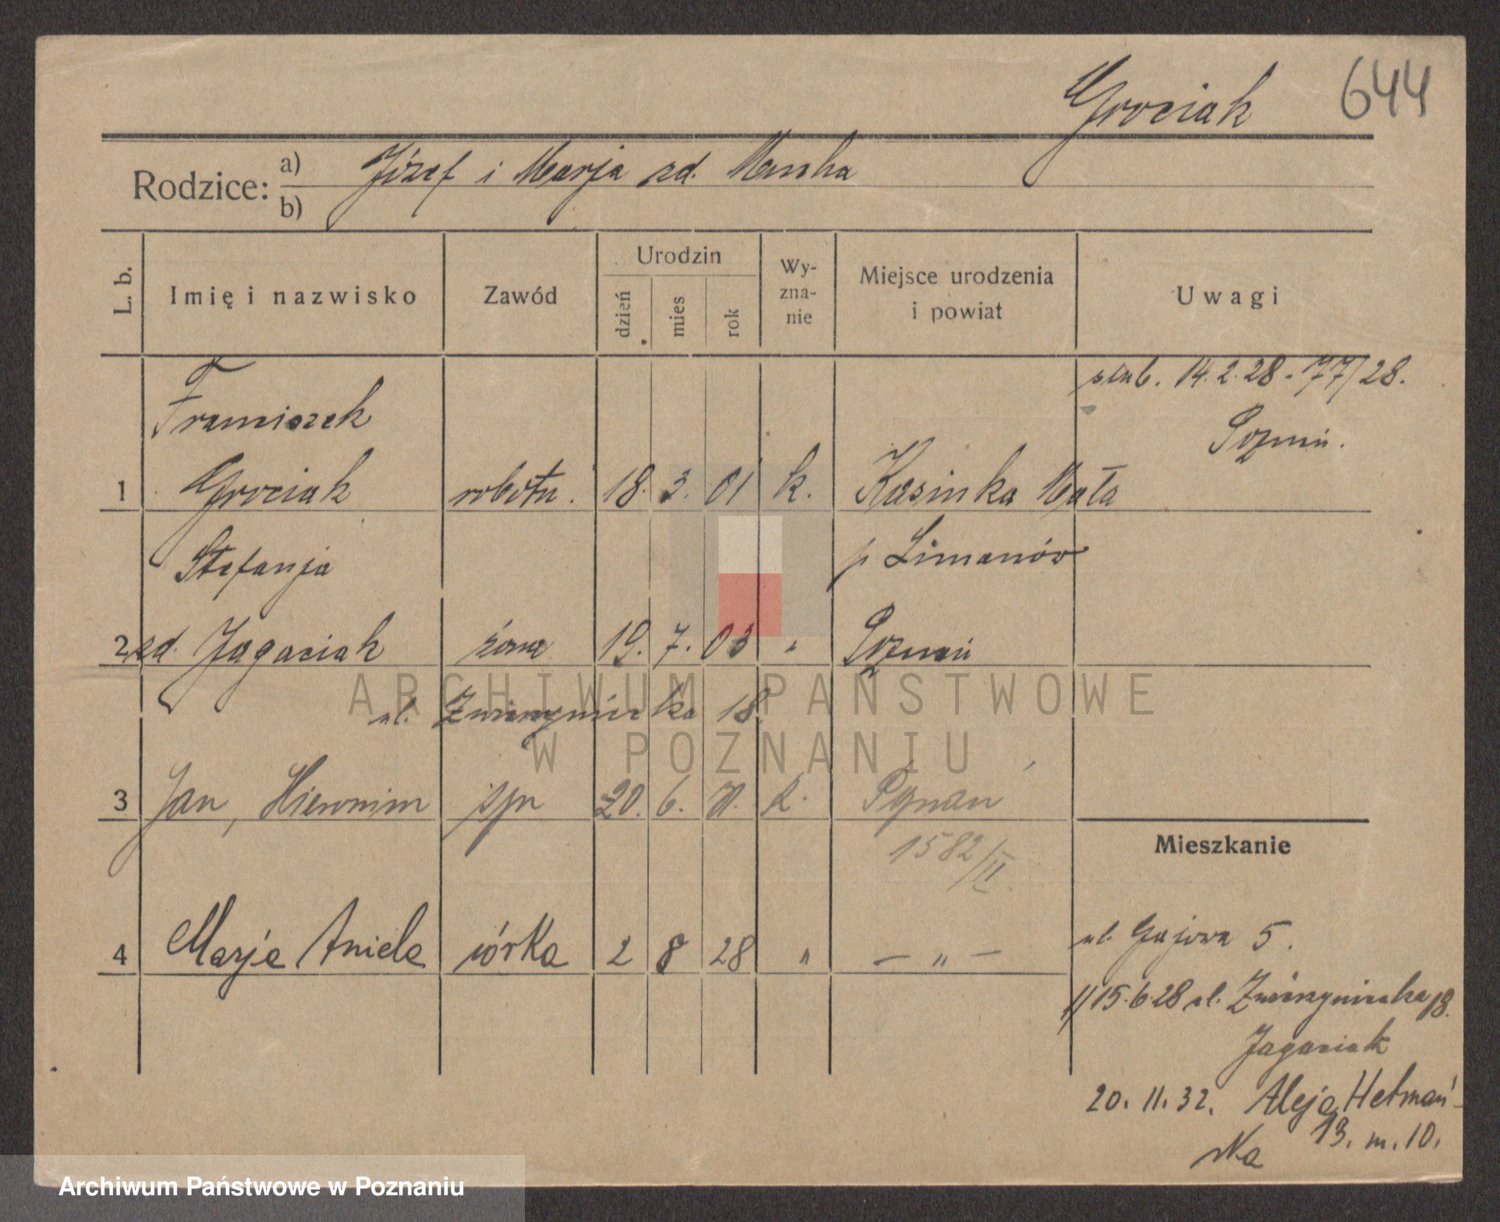 Grociak 644
Rodzice: a) Józef i Marja zd.
b)
L. b. Imię i nazwisko Zawód Urodzin dzień mies rok Wyznanie Miejsce urodzenia i powiat Uwagi
ślub. 14.2.28 - 77/28.
Franciszek Poznań.
1 Grociak robotn. 18. 3. 01 k. Kasinka Mała
Stefanja p Limanów
2 zd. Jagaciak żona 19. 7. 03 „ Poznań
ul. Zwierzyniecka 18
ARCHIWUM PAŃSTWOWE
W POZNANIU
3 Jan, Hieronim syn 20. 6. k. Poznan
1582/II
Mieszkanie
4 Marja Aniela córka 2 8 28 „ — „ —
ul. Gajowa 5.
1/15.6.28 ul. Zwierzyniecka 18.
Jagaciak
20. 11. 32. Aleja Hetmań-
ska 13. m. 10.
Archiwum Państwowe w Poznaniu